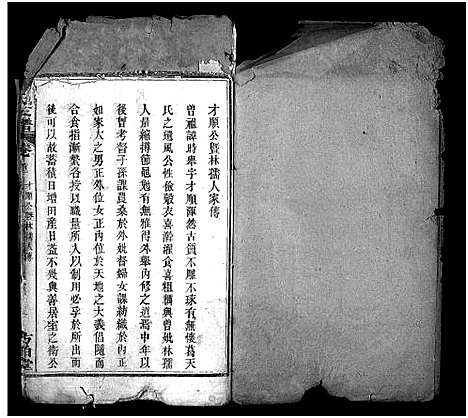 才順公暨林孺人家傳
曾祖諱時舉字才順渾然古質不雕不琢有無懷葛天
氏之遺風公性儉穀衣喜澣濯食喜粗糲與曾妣林孺
人量縮撙節黽勉有無雅得外舉內修之道焉中年以
後曾考督子孫課農桑於外妣督婦女課紡織於內正
如家人之男正外位女正內位於天地之大義倡隨而
合食指漸繁各授以職量所入以制用必裕於所出而
後可以故蓄積日增田產日益不幾與善居室之衛公
才順公暨林孺人傳